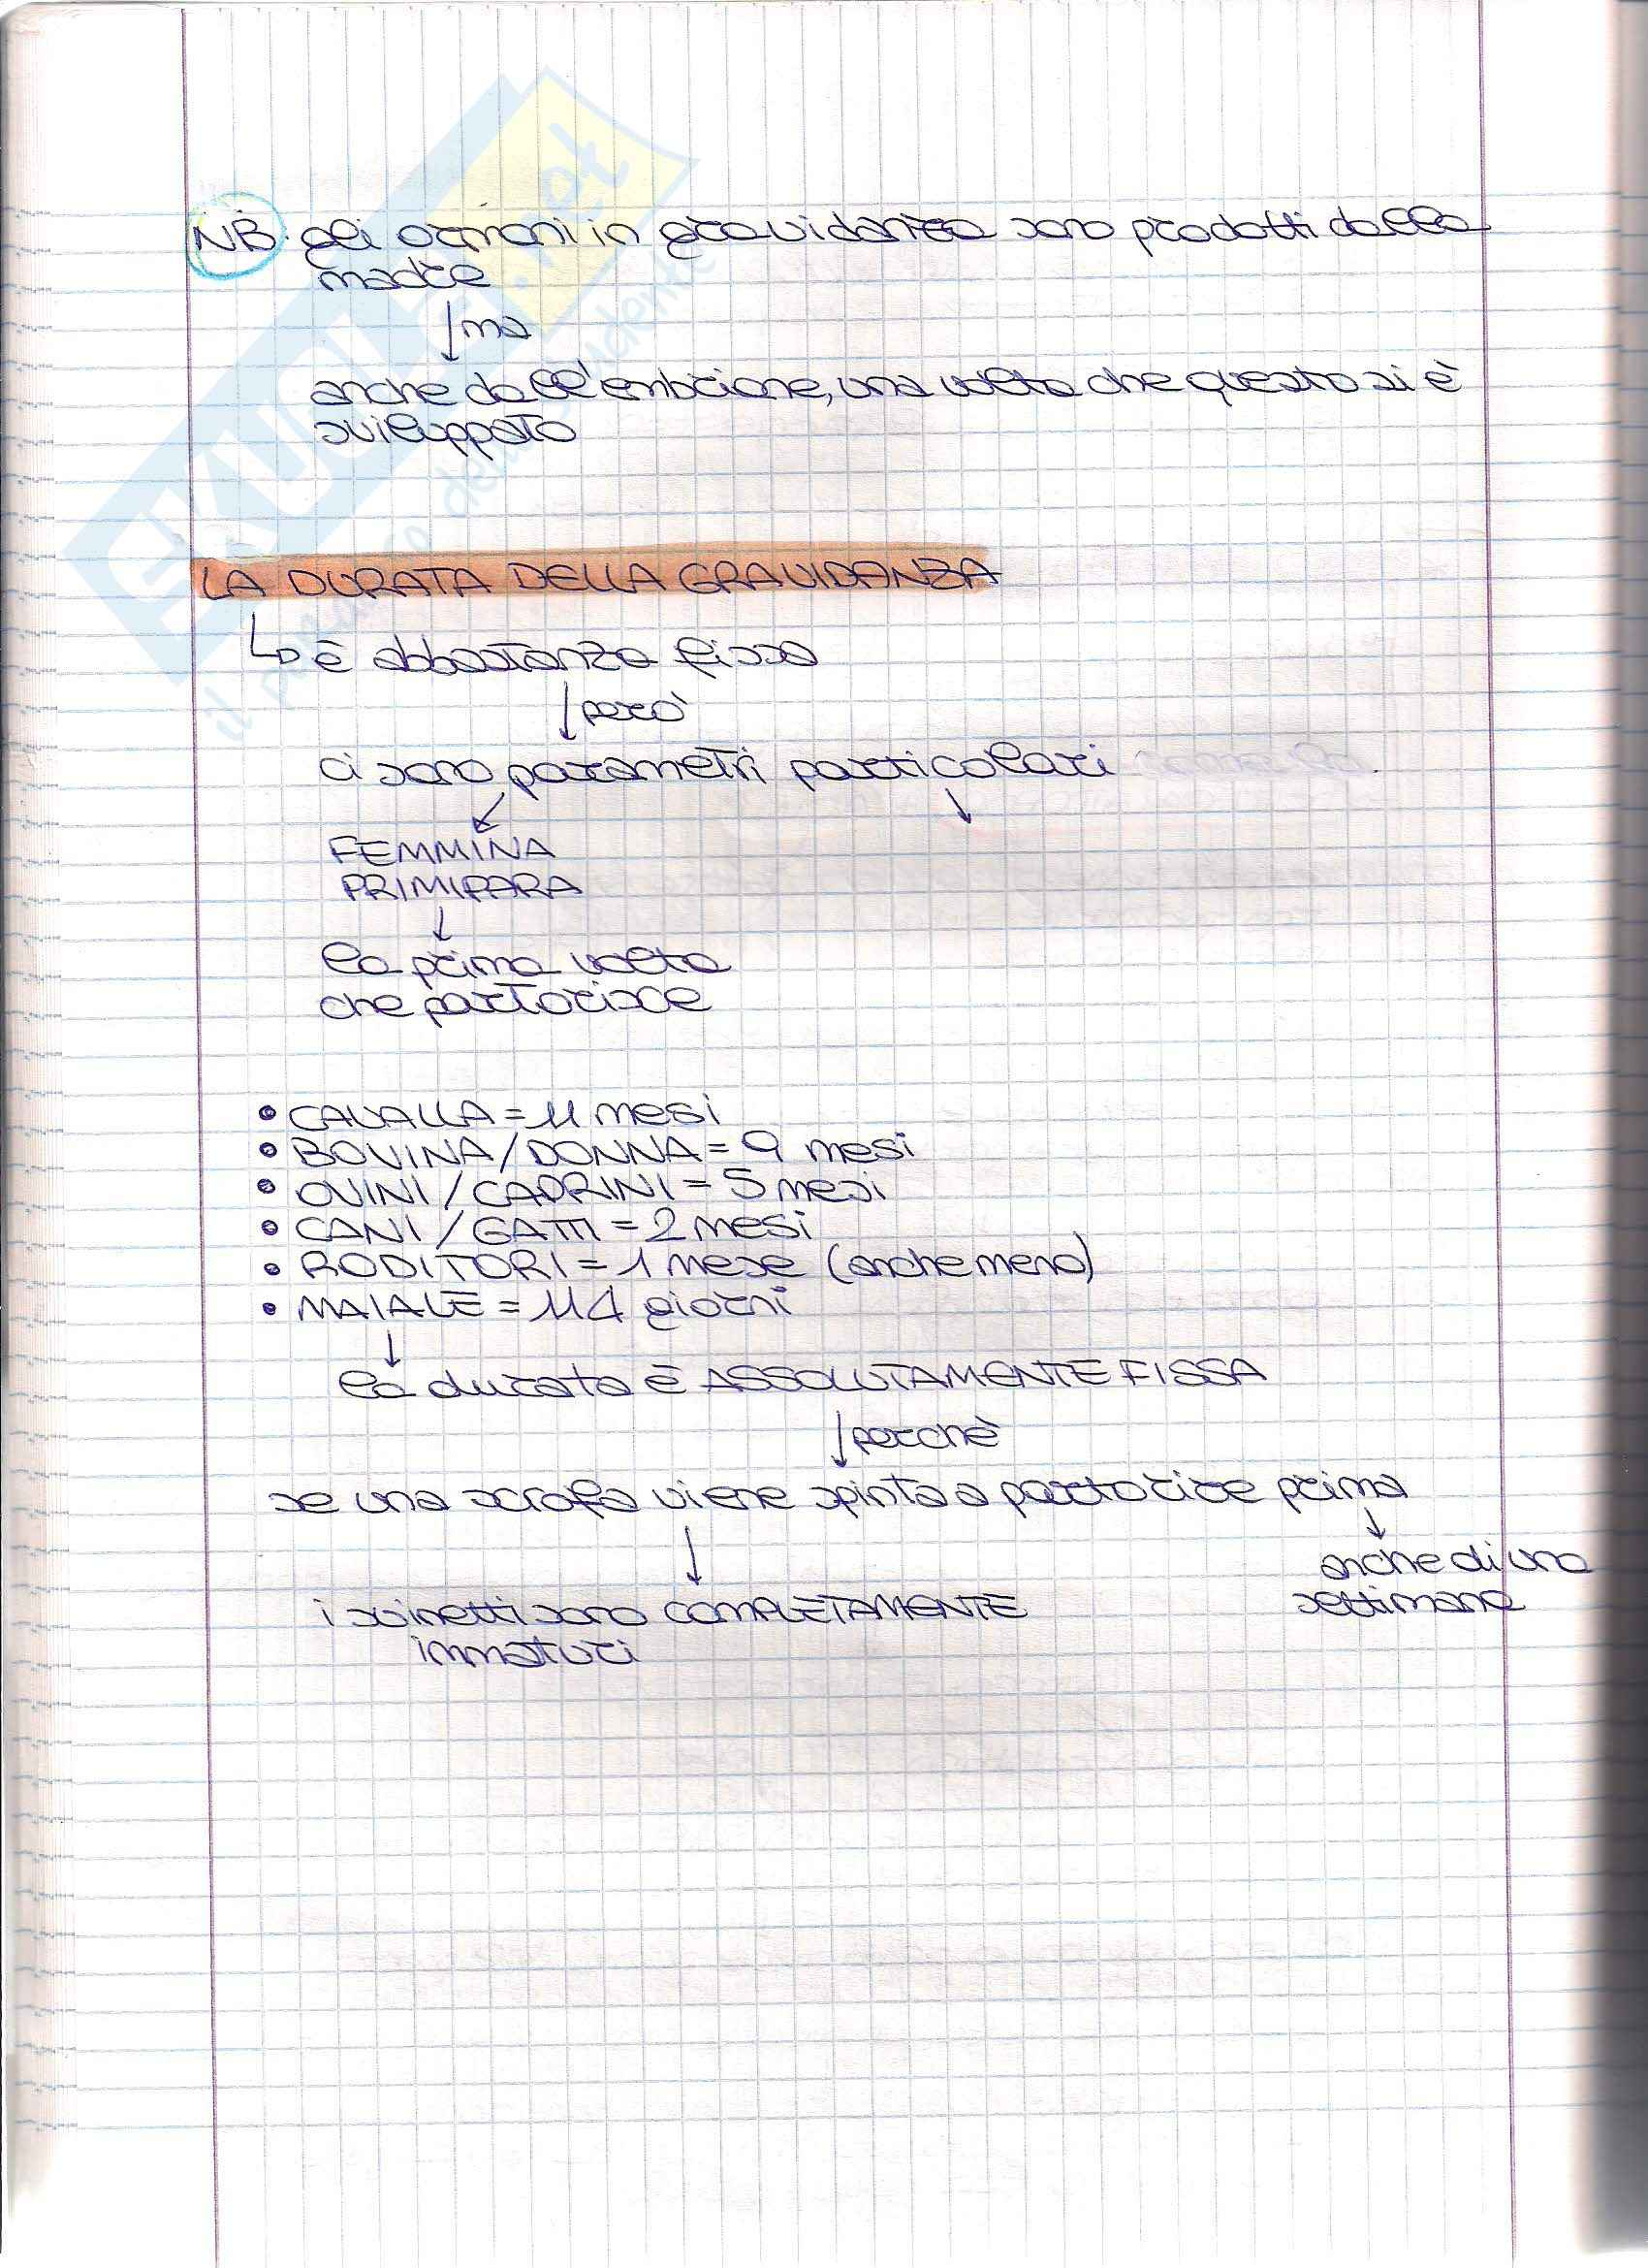 SKUOLA.net
il paradiso dello studente
NB: gli ormoni in gravidanza sono prodotti dalla
madre
ma
anche dall'embrione, una volta che questo si è
sviluppato
LA DURATA DELLA GRAVIDANZA
è abbastanza fissa
però
ci sono parametri particolari
FEMMINA
PRIMIPARA
la prima volta
che partorisce
• CAVALLA = 11 mesi
• BOVINA/DONNA = 9 mesi
• OVINI/CAPRINI = 5 mesi
• CANI/GATTI = 2 mesi
• RODITORI = 1 mese (anche meno)
• MAIALE = 114 giorni
la durata è ASSOLUTAMENTE FISSA
perchè
se una scrofa viene spinta a partorire prima
anche di una
settimana
i suinetti sono COMPLETAMENTE
immaturi